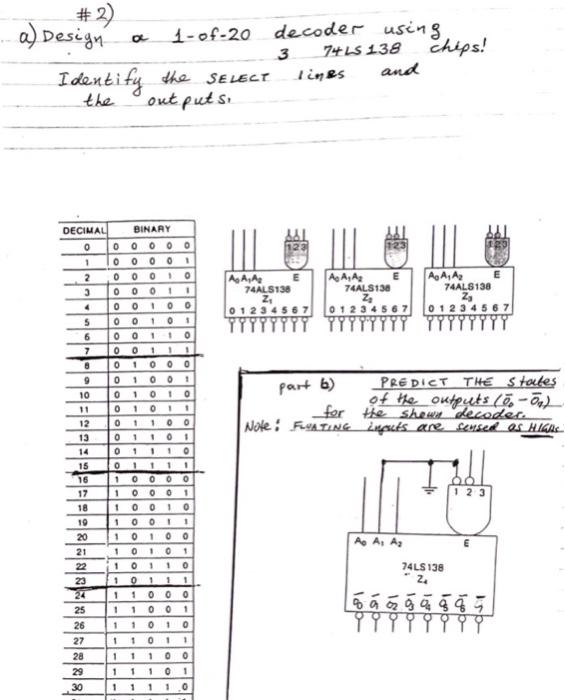 #2)
a) Design a 1-of-20 decoder using
3 74LS138 chips!
Identify the SELECT lines and
the outputs.
DECIMAL BINARY
0 0 0 0 0 0
1 0 0 0 0 1
2 0 0 0 1 0
3 0 0 0 1 1
4 0 0 1 0 0
5 0 0 1 0 1
6 0 0 1 1 0
7 0 0 1 1 1
8 0 1 0 0 0
9 0 1 0 0 1
10 0 1 0 1 0
11 0 1 0 1 1
12 0 1 1 0 0
13 0 1 1 0 1
14 0 1 1 1 0
15 0 1 1 1 1
16 1 0 0 0 0
17 1 0 0 0 1
18 1 0 0 1 0
19 1 0 0 1 1
20 1 0 1 0 0
21 1 0 1 0 1
22 1 0 1 1 0
23 1 0 1 1 1
24 1 1 0 0 0
25 1 1 0 0 1
26 1 1 0 1 0
27 1 1 0 1 1
28 1 1 1 0 0
29 1 1 1 0 1
30 1 1 1 1 0
1 2 3
A₀ A₁ A₂ E
74ALS138
Z₁
0 1 2 3 4 5 6 7
1 2 3
A₀ A₁ A₂ E
74ALS138
Z₂
0 1 2 3 4 5 6 7
1 2 3
A₀ A₁ A₂ E
74ALS138
Z₃
0 1 2 3 4 5 6 7
part b) PREDICT THE states
of the outputs (Ō₀ - Ō₇)
for the shown decoder.
Note: FLOATING inputs are sensed as HIGHs
1 2 3
A₀ A₁ A₂ E
74LS138
Z₄